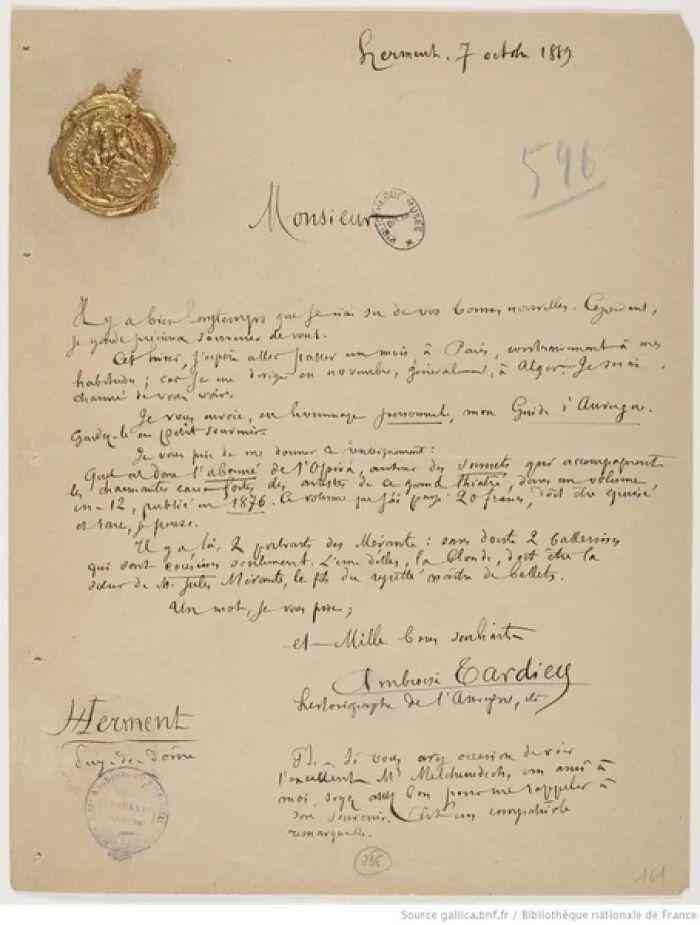 Herment. 7 octobre 1889
596
Monsieur
Il y a bien longtemps que je n'ai su de vos bonnes nouvelles. Cependant,
je garde précieux souvenir de vous.
Cet hiver, j'espère aller passer un mois, à Paris, contrairement à mes
habitudes ; car je me dirige en novembre, généralement, à Alger. Je serai
charmé de vous voir.
Je vous envoie, en hommage personnel, mon Guide d'Auvergne.
Gardez-le en petit souvenir.
Je vous prie de me donner 2 renseignement :
Quel est donc l'abonné de l'Opéra, auteur des sonnets qui accompagnent
les charmantes eaux fortes des artistes de ce grand théâtre, dans un volume,
in-12, publié en 1876. Ce volume que j'ai payé 20 francs, doit être épuisé
et rare, je pense.
Il y a, là, 2 portraits des Mérante : sans doute 2 ballerines
qui sont cousines seulement. L'une d'elles, la blonde, doit être la
sœur de M. Jules Mérante, le fils du regretté maître de ballets.
Un mot, je vous prie ;
et Mille bons souhaits
Ambroise Tardieu
historiographe de l'Auvergne, etc
Herment
Puy-de-Dôme
PS. Si vous avez occasion de voir
l'excellent Mr, un ami à
moi, soyez assez bon pour me rappeler à
son souvenir. C'est un compatriote
remarquable.
286
161
Source gallica.bnf.fr / Bibliothèque nationale de France